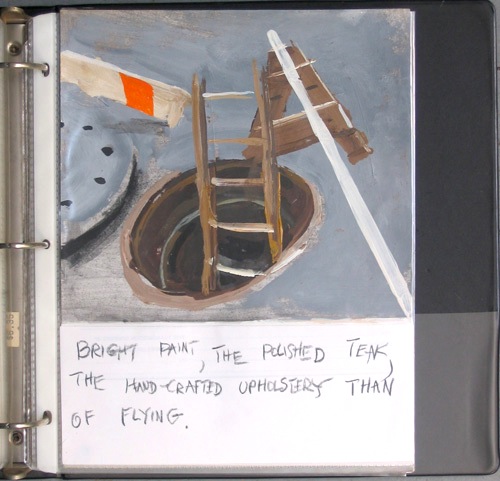 BRIGHT PAINT, THE POLISHED TEAK,
THE HAND-CRAFTED UPHOLSTERY THAN
OF FLYING.